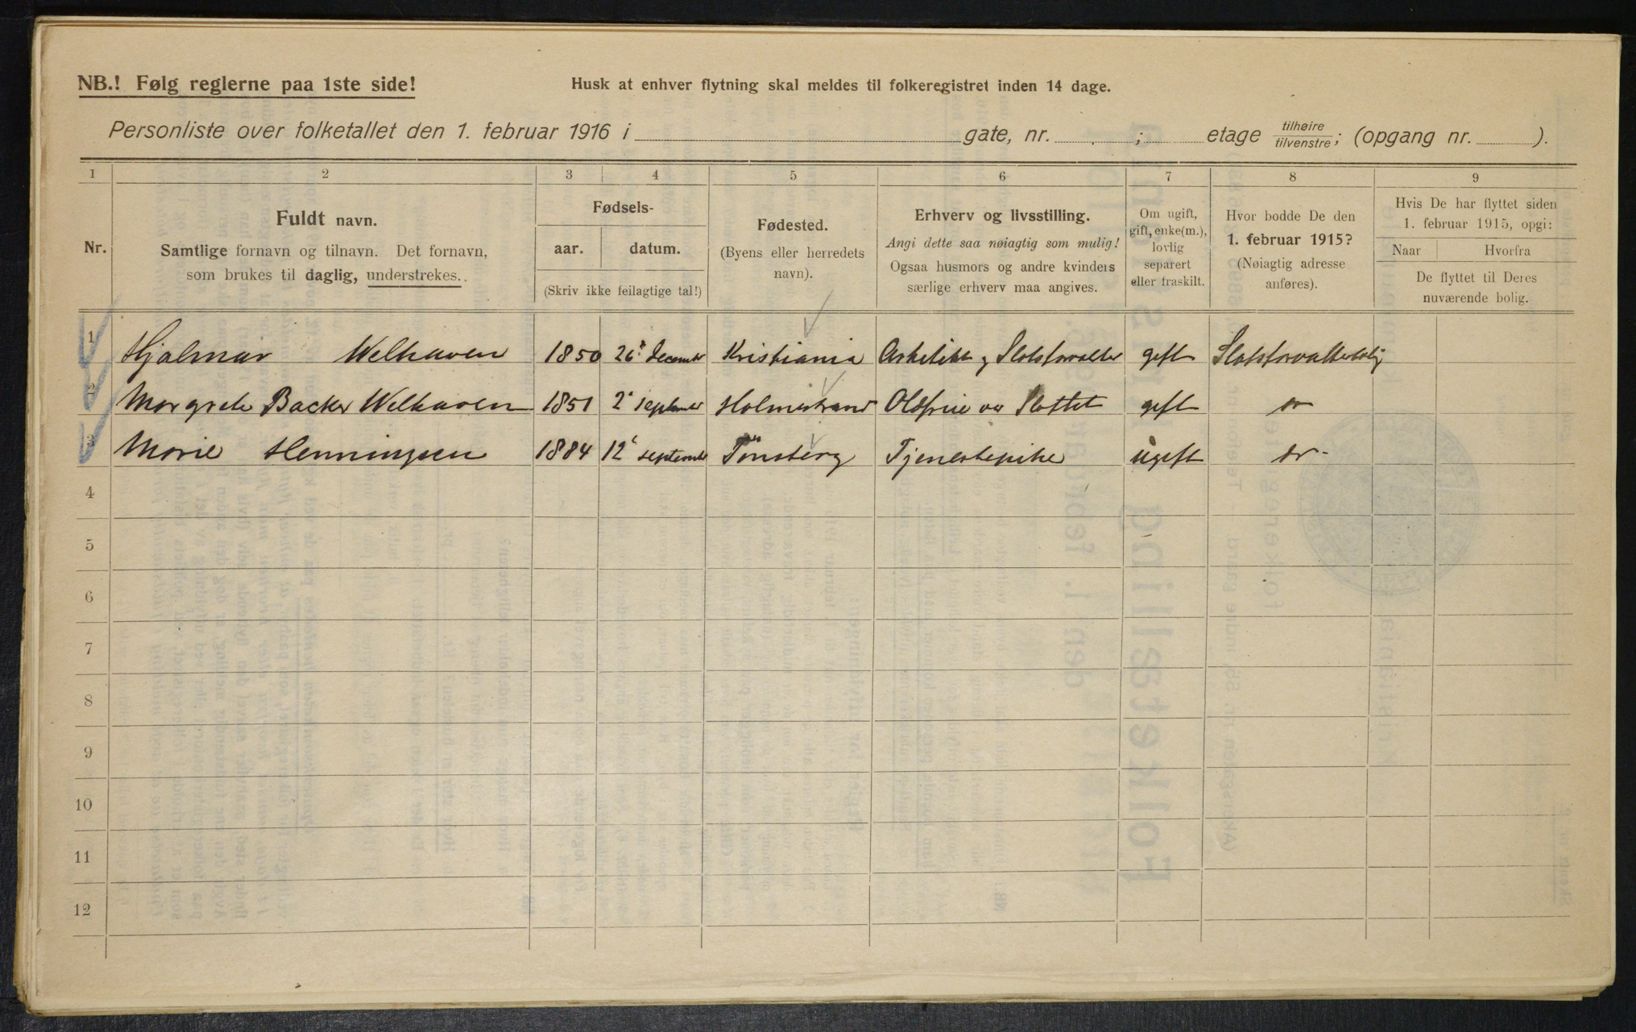 NB.! Følg reglerne paa 1ste side!
Husk at enhver flytning skal meldes til folkeregistret inden 14 dage.
Personliste over folketallet den 1. februar 1916 i gate, nr. ; etage tilhøire/tilvenstre; (opgang nr. ).
1 2 3 4 5 6 7 8 9
Nr.
Fuldt navn.
Samtlige fornavn og tilnavn. Det fornavn,
som brukes til daglig, understrekes.
Fødsels-
aar. datum.
(Skriv ikke feilagtige tal!)
Fødested.
(Byens eller herredets
navn).
Erhverv og livsstilling.
Angi dette saa nøiagtig som mulig!
Ogsaa husmors og andre kvinders
særlige erhverv maa angives.
Om ugift,
gift, enke(m.),
lovlig
separert
eller fraskilt.
Hvor bodde De den
1. februar 1915?
(Nøiagtig adresse
anføres).
Hvis De har flyttet siden
1. februar 1915, opgi:
Naar Hvorfra
De flyttet til Deres
nuværende bolig.
1 Hjalmar Welhaven 1850 26 december Kristiania Arkitekt og Slotsforvalter gift Slotsforvalterbolig
2 Margrete Backer Welhaven 1851 2 september Holmestrand gift do
3 Marie Henningsen 1884 12 september Tönsberg Tjenestepike ugift do
4
5
6
7
8
9
10
11
12